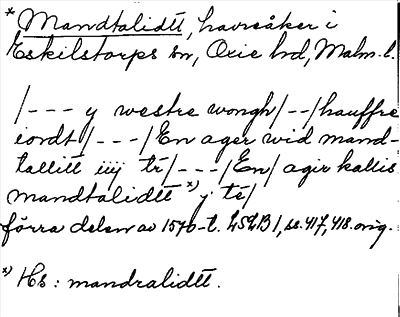 * Mandtalidtt, havreåker i
Eskilstorps sn, Oxie hd, Malm. l.
/--- y westre wongh/--/hauffre
iordt/---/En ager wid mand-
tallitt iiij tr/---/En/ agir kallis
mandtalidtt x) j té/
förra delen av 1570-t. LSLB 1, ss. 417, 418. orig.
x) Hs: mandralidtt.